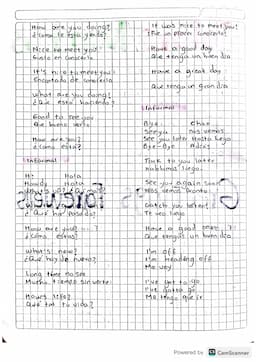 How are you doing?
¿Cómo te esta yendo?
Nice to meet you!
Gusto en conocerte
It's nice to meet you!
Encantado de conocerlo
What are you doing?
¿Que esta haciendo?
Good to see you
Que bueno verte
How are you?
¿Cómo esta?
Informal
Hi Hola
Howdy Hola
¿Que ha pasado?
How are you
¿Cómo estas?
What's new?
¿Que hay de nuevo?
Long time no see
Mucho tiempo sin verte
How's life?
¿Que tal tu vida?
It was nice to meet you!
Have a good day
Que tenga un buen dia
Have a great day
Que tenga un gran dia
Informal
Bye Chao
See ya Nos vemos
See you later Hasta luego
Bye-Bye Adios
Talk to you later
Hablamos luego
See you again soon
Nos vemos pronto
Catch you later!
Te veo luego
Have a good one
Que tengas un buen dia
I'm off
I'm heading off
Me voy
I've got to go
I've gotta go
Me tengo que ir
Powered by CamScanner